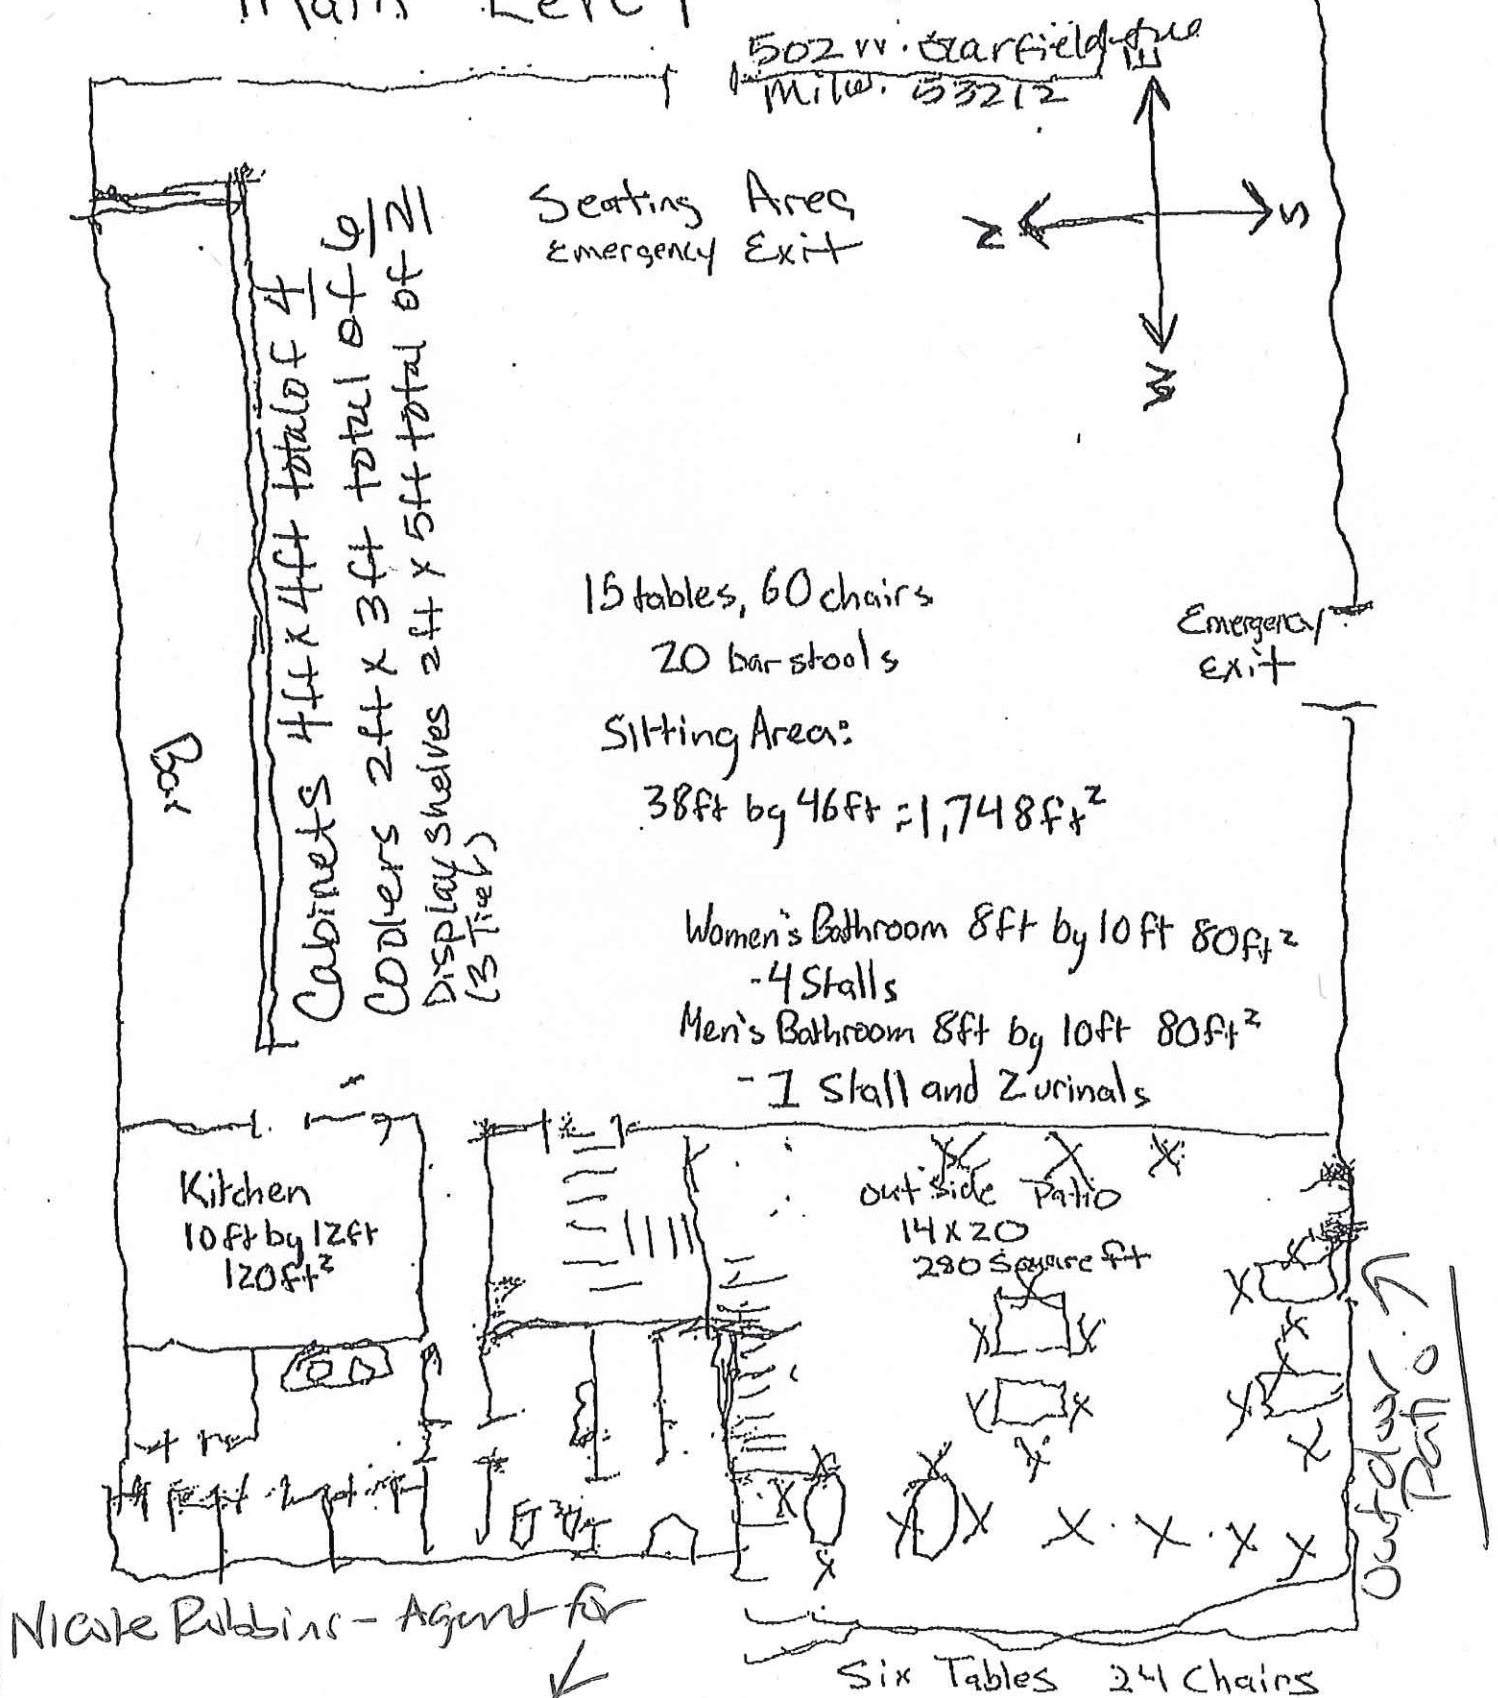 Main Level
502 W. Garfield Ave
Milw. 53212
E
N
S
W
Seating Area
Emergency Exit
Cabinets 4ft x 4ft total of 4
Coolers 2ft x 3ft total of 6
Display shelves 2ft x 5ft total of 2
(3 Tier)
Bar
15 tables, 60 chairs
20 bar stools
Emergency
Exit
Sitting Area:
38ft by 46ft = 1,748ft²
Women's Bathroom 8ft by 10ft 80ft²
- 4 Stalls
Men's Bathroom 8ft by 10ft 80ft²
- 1 Stall and 2 urinals
Kitchen
10ft by 12ft
120ft²
Outside Patio
14 x 20
280 Square ft
Outdoor
Patio
Nicole Robbins - Agent for
Six Tables 24 Chairs